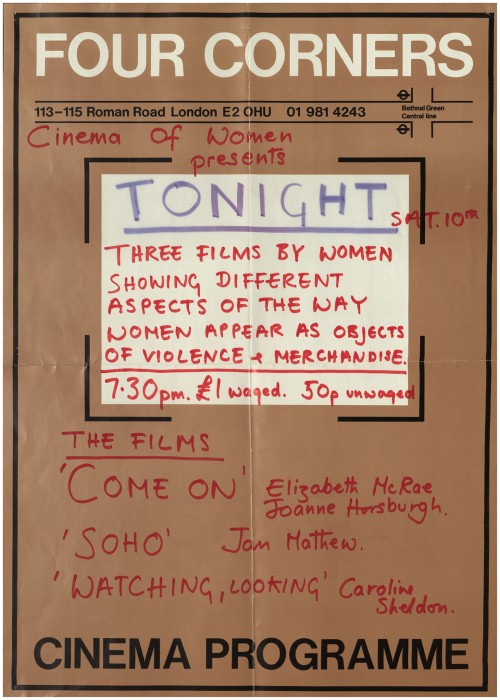 FOUR CORNERS
113–115 Roman Road London E2 0HU 01 981 4243
Bethnal Green
Central line
Cinema Of Women
presents
TONIGHT
SAT. 10th
THREE FILMS BY WOMEN
SHOWING DIFFERENT
ASPECTS OF THE WAY
WOMEN APPEAR AS OBJECTS
OF VIOLENCE & MERCHANDISE.
7.30pm. £1 waged. 50p unwaged
THE FILMS
'COME ON' Elizabeth McRae
Joanne Horsburgh.
'SOHO' Jan Mathew.
'WATCHING, LOOKING' Caroline
Sheldon.
CINEMA PROGRAMME